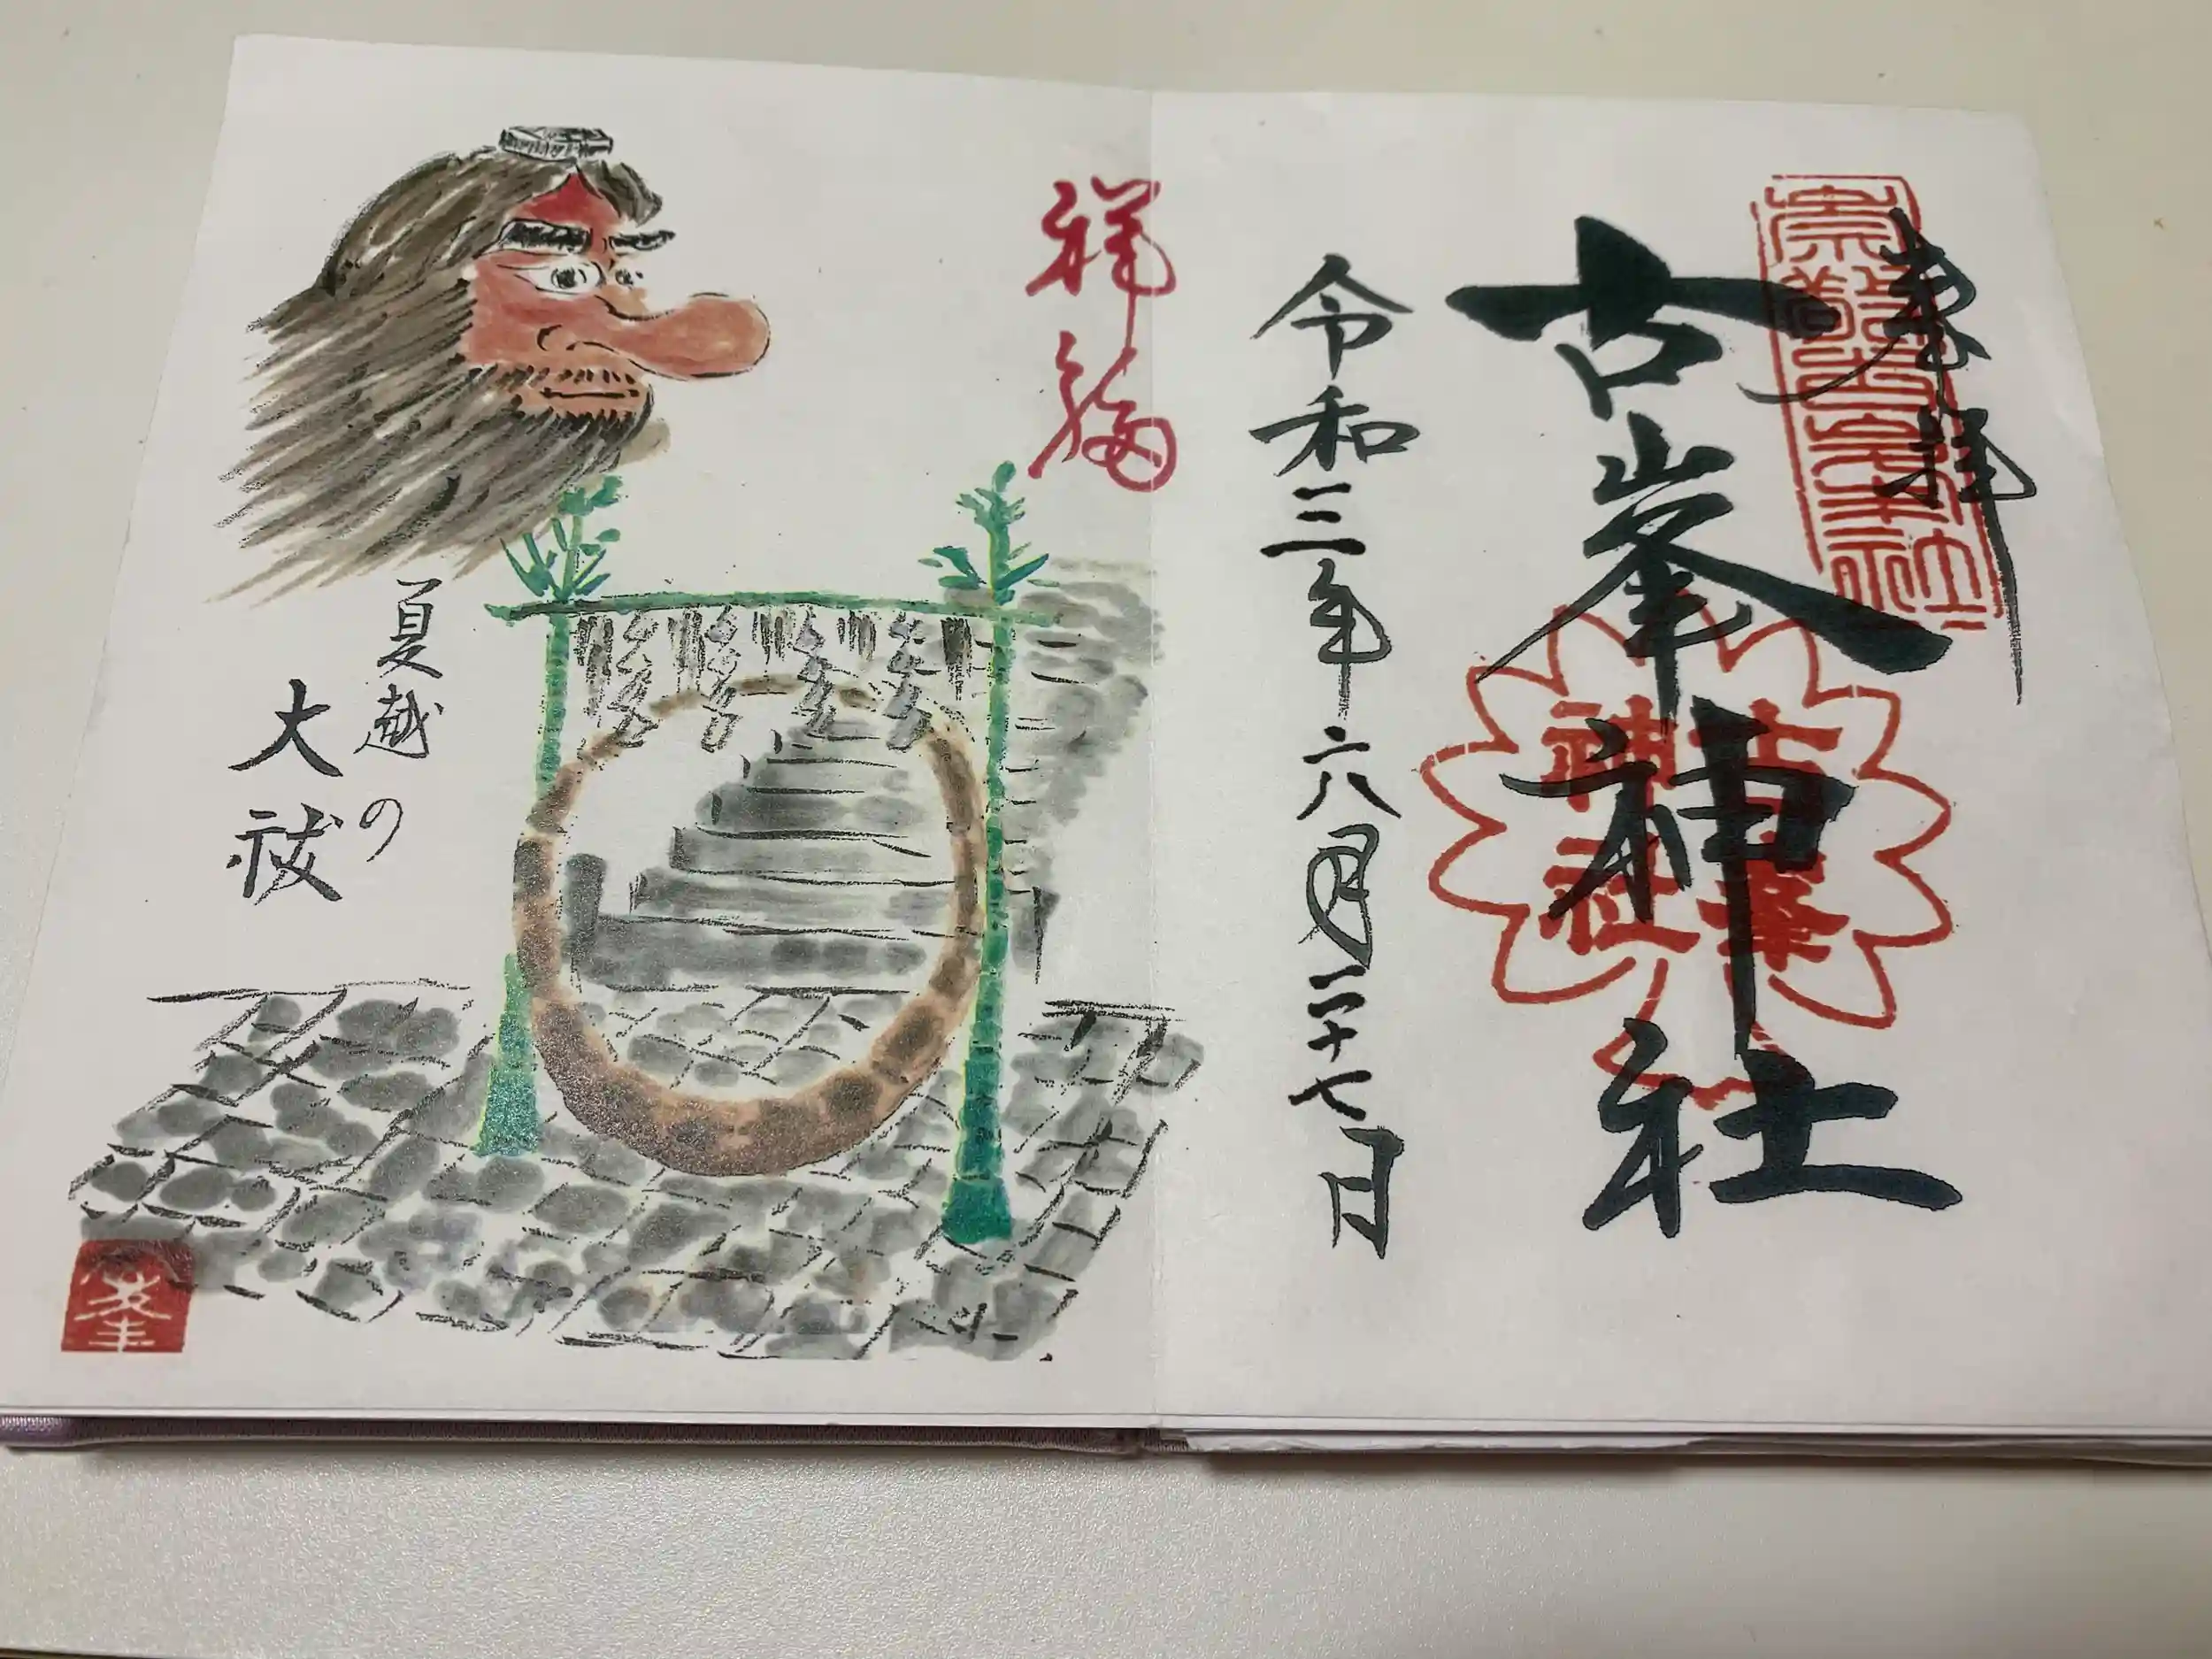 奉拝
古峯神社
古峯
神社
令和三年六月二十七日
祥福
夏越の
大祓
峯